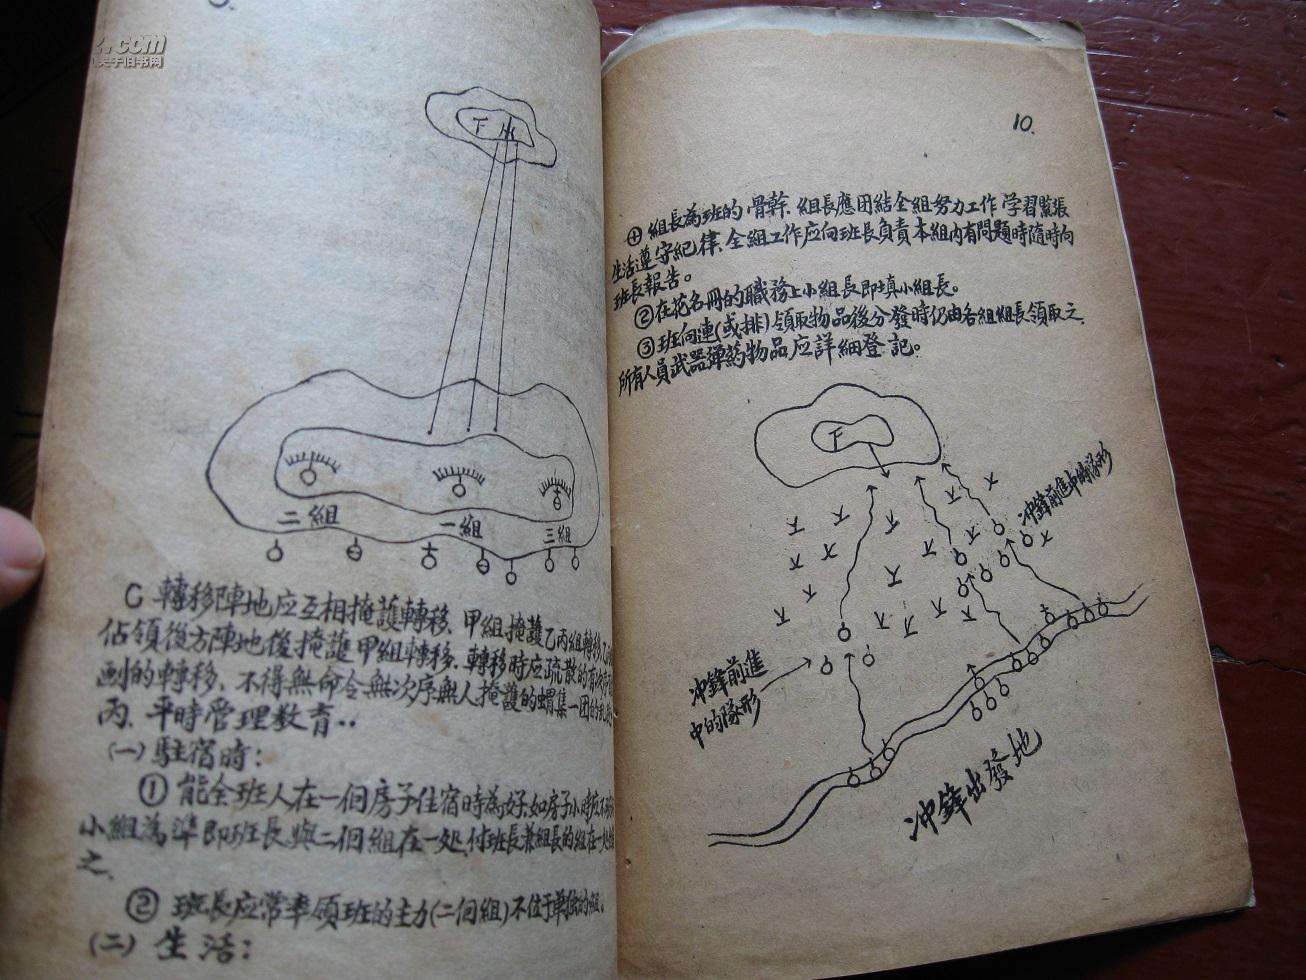 下
二組
一組
三組
C 轉移陣地应互相掩護轉移、甲組掩護乙丙組轉移
佔領後方陣地後掩護甲組轉移、轉移時应疏散的有次序
劃的轉移、不得無命令無次序無人掩護的蝟集一团的
丙、平時管理教育..
(一)駐宿時：
① 能全班人在一個房子住宿時為好、如房子小時应
小組為準即班長與二個組在一処、付班長兼組長的組在一処
之、
② 班長应常率領班的主力(二個組)不位于單独的組。
(二)生活：
10.
組長為班的骨幹、組長應团結全組努力工作学習緊張
生活遵守紀律、全組工作应向班長負責本組内有問題時隨時向
班長報告。
②在花名冊的職務上小組長即填小組長。
③班向連(或排)領取物品後分發時仍由各組組長領取之、
所有人員武器彈药物品应詳細登記。
下
冲鋒前進中的隊形
冲鋒前進
中的隊形
冲鋒出發地